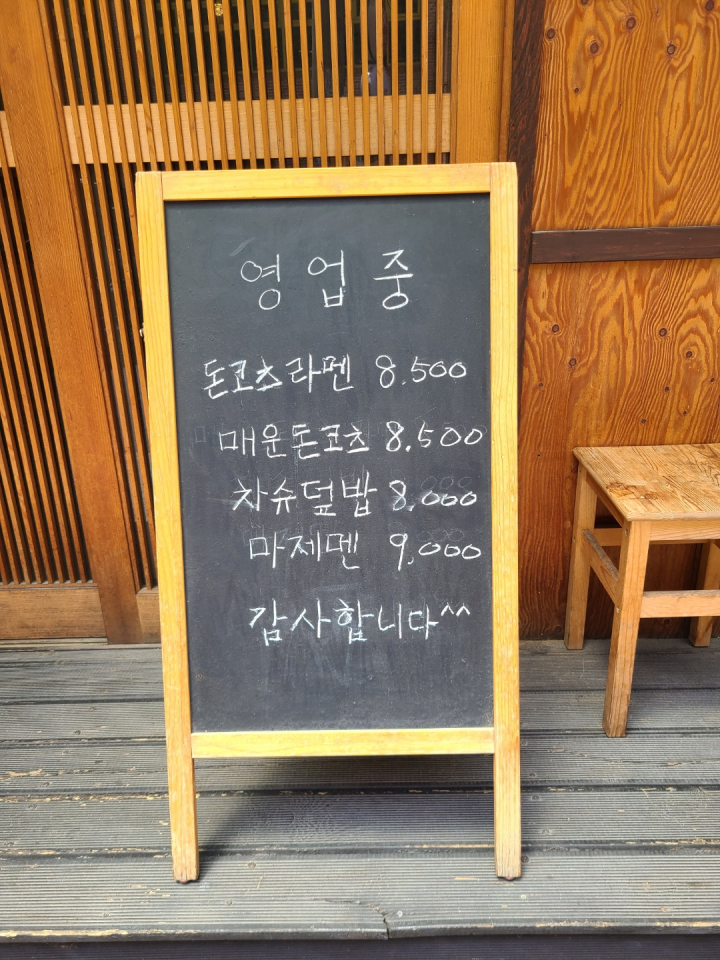 영업중
돈코츠라멘 8.500
매운돈코츠 8.500
차슈덮밥 8.000
마제멘 9.000
감사합니다^^